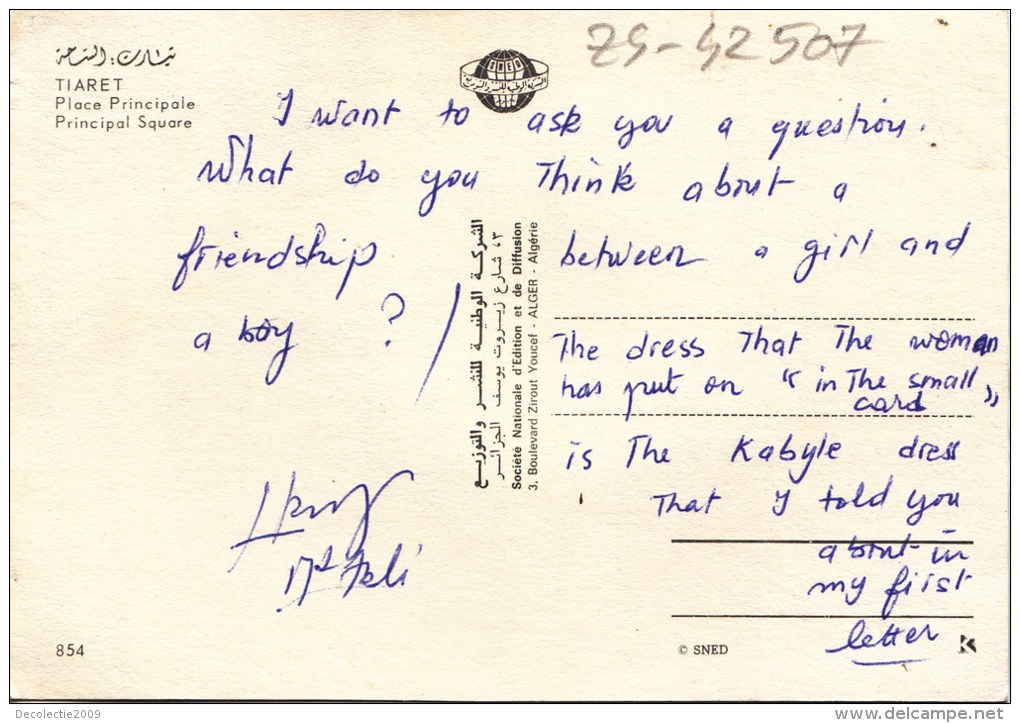 تيارت : الساحة
TIARET
Place Principale
Principal Square
SNED
ZS-42507
I want to ask you a question.
What do you Think about a
friendship between a girl and
a boy ?
The dress That The woman
has put on " in The small
card "
is The Kabyle dress
That I told you
about in
my first
letter
الشركة الوطنية للنشر والتوزيع
٣، شارع زيروت يوسف الجزائر
Société Nationale d'Edition et de Diffusion
3, Boulevard Zirout Youcef - ALGER - Algérie
854
© SNED
K
Decolectie2009
www.delcampe.net